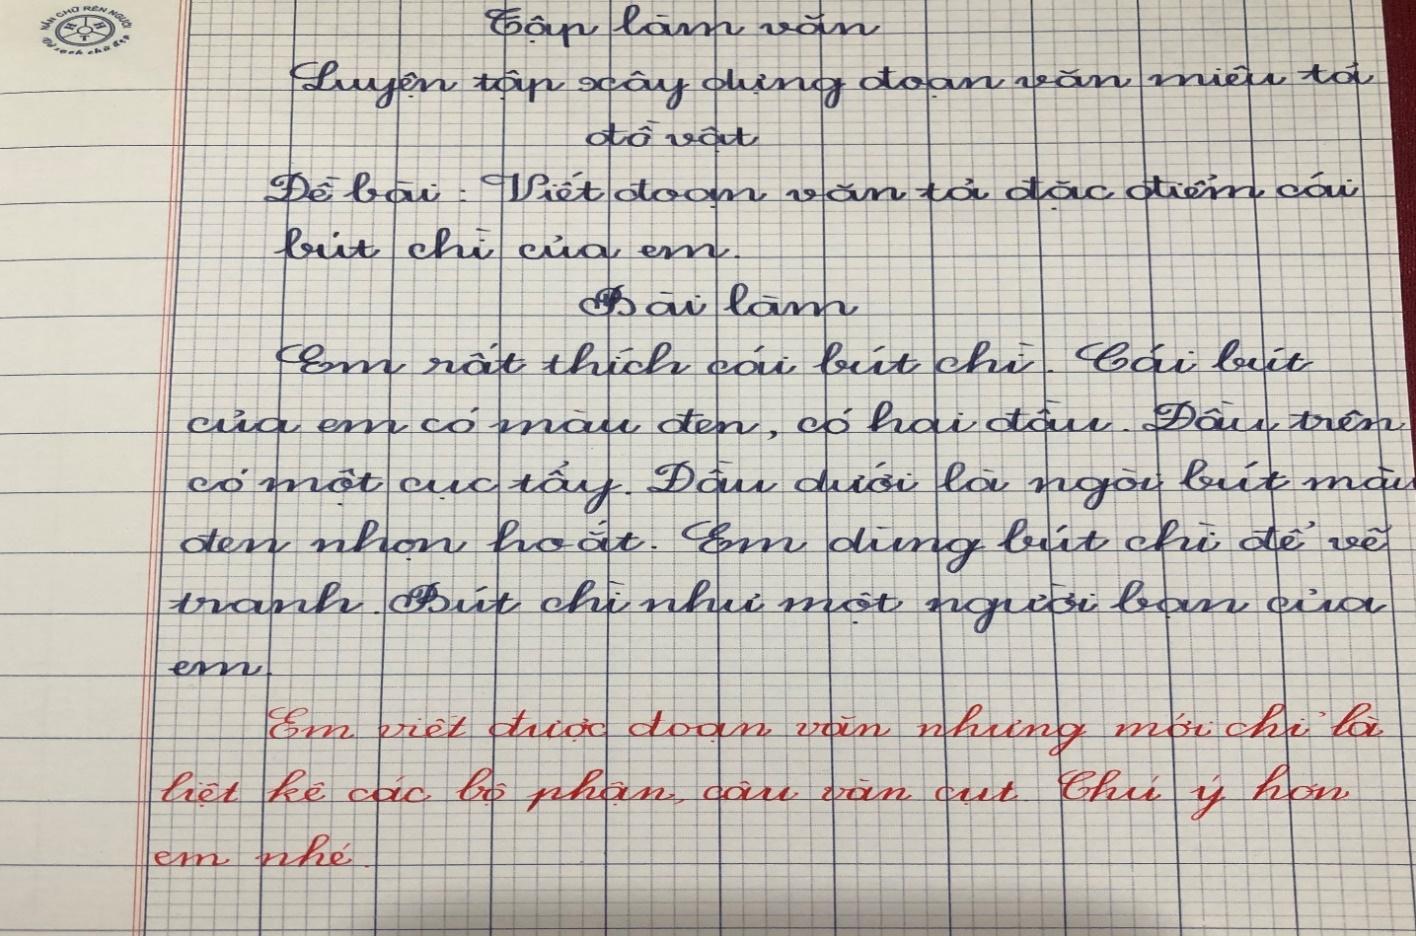 NẮN CHỮ RÈN NGƯỜI
HTH
Vở sạch chữ đẹp
Tập làm văn
Luyện tập xây dựng đoạn văn miêu tả
đồ vật
Đề bài : Viết đoạn văn tả đặc điểm cái
bút chì của em.
Bài làm
Em rất thích cái bút chì. Cái bút
của em có màu đen, có hai đầu. Đầu trên
có một cục tẩy. Đầu dưới là ngòi bút màu
đen nhọn hoắt. Em dùng bút chì để vẽ
tranh. Bút chì như một người bạn của
em.
Em viết được đoạn văn nhưng mới chỉ là
liệt kê các bộ phận, câu văn cụt. Chú ý hơn
em nhé.